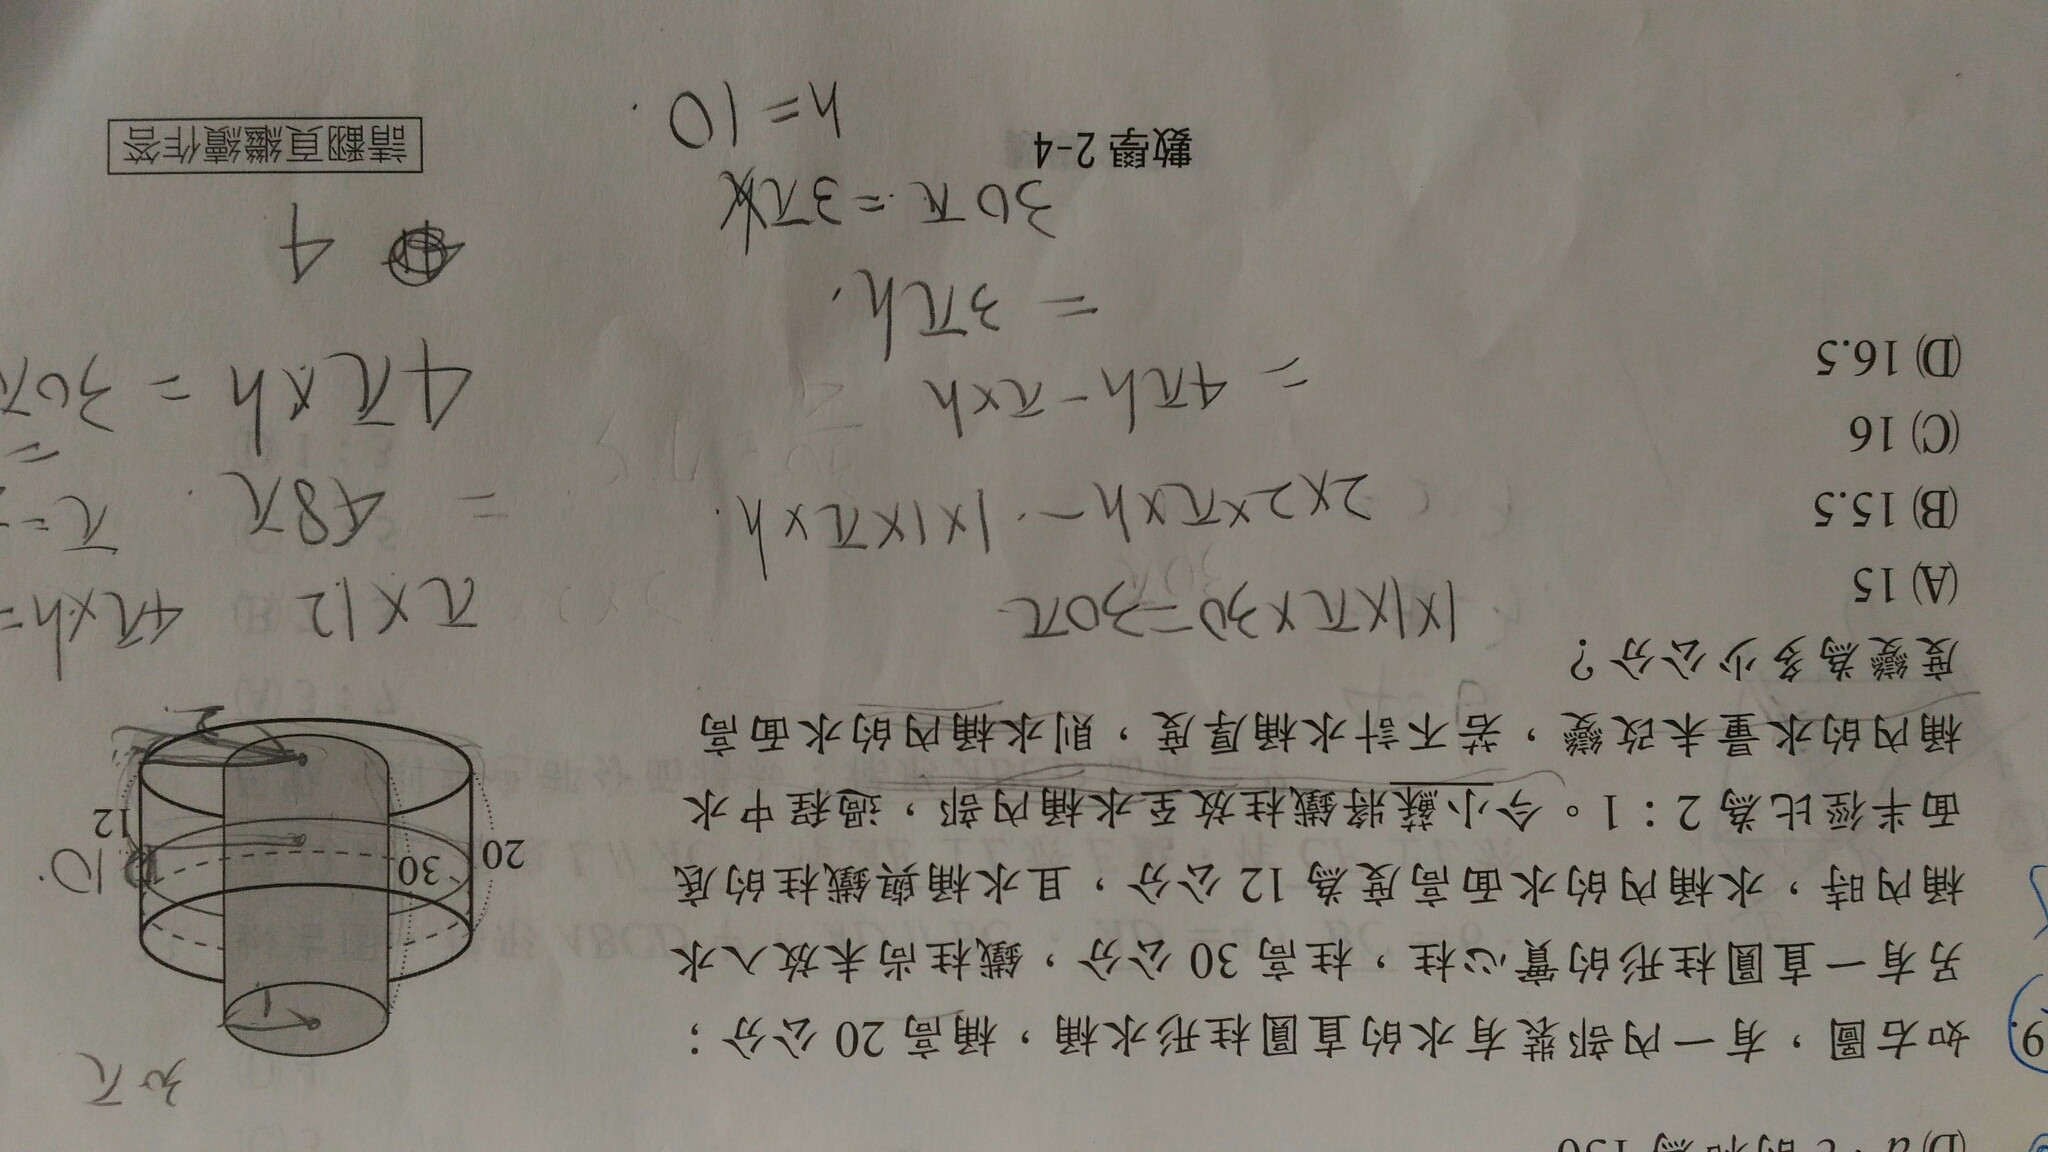 (D) a、c 的和為 150
9. 如右圖，有一內部裝有水的直圓柱形水桶，桶高 20 公分；
另有一直圓柱形的實心柱，柱高 30 公分，鐵柱尚未放入水
桶內時，水桶內的水面高度為 12 公分，且水桶與鐵柱的底
面半徑比為 2：1。今小蘇將鐵柱放至水桶內部，過程中水
桶內的水量未改變，若不計水桶厚度，則水桶內的水面高
度變為多少公分？
(A) 15
(B) 15.5
(C) 16
(D) 16.5
30π
1
20
30
10
12
2
1×1×π×30=30π
2×2×π×h - 1×1×π×h
= 4πh - π×h
= 3πh
30π = 3πh
h=10
π×12
= 48π
4π×h=
4π×h = 30π
4
數學 2-4
請翻頁繼續作答